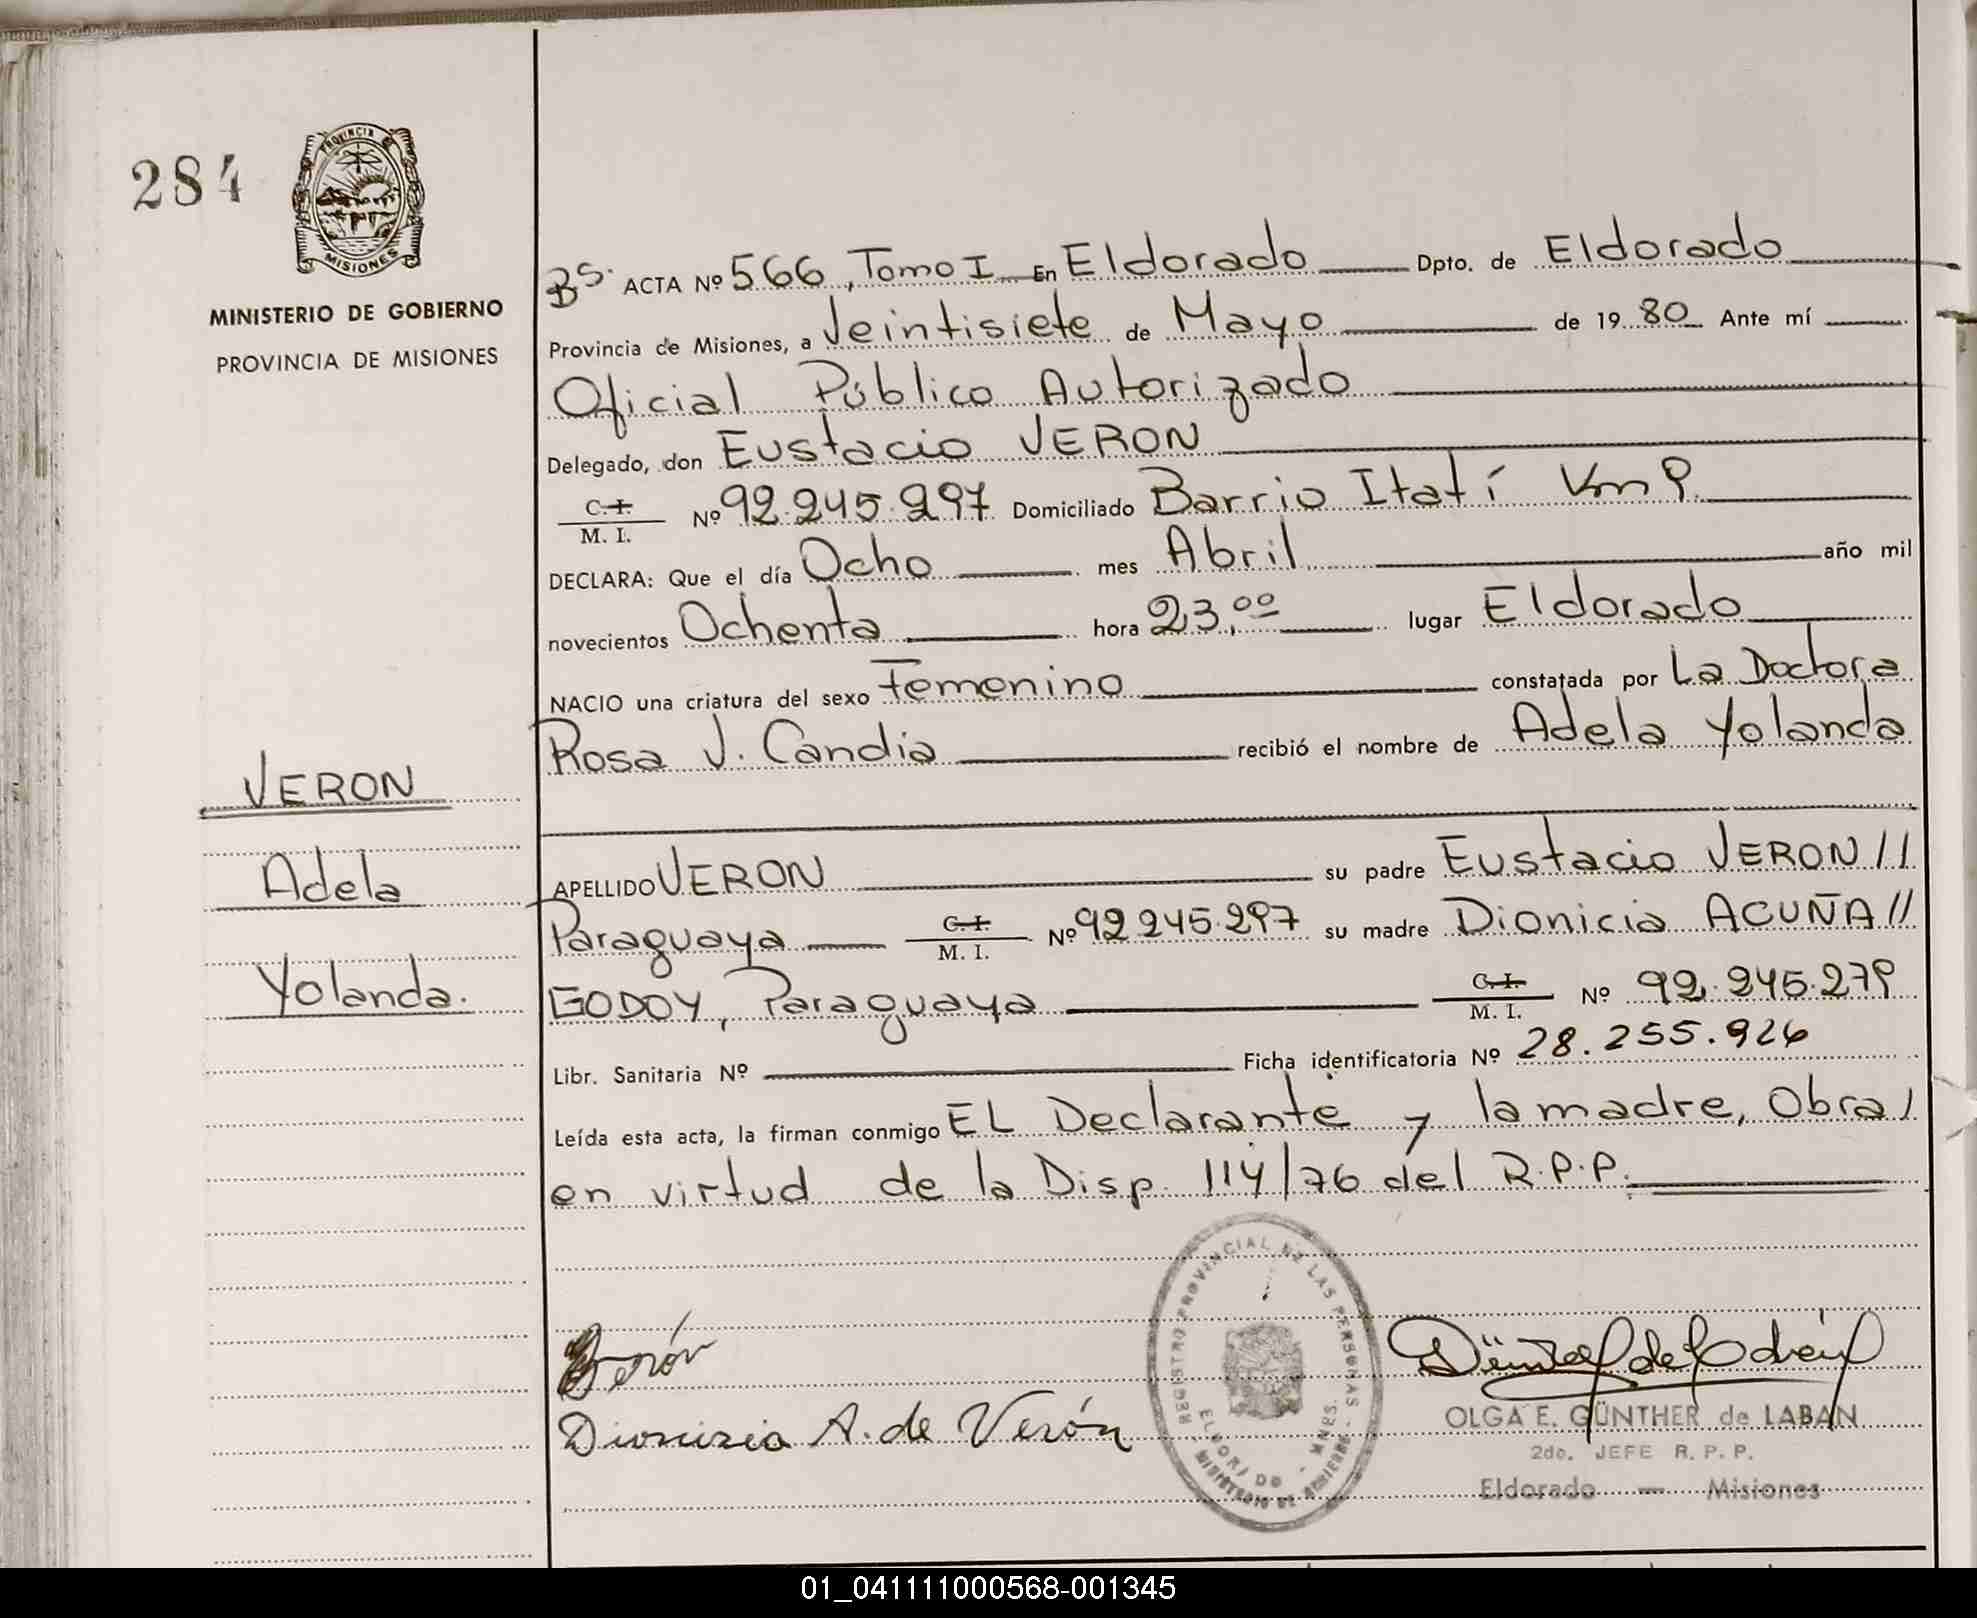 284
PROVINCIA DE
MISIONES
MINISTERIO DE GOBIERNO
PROVINCIA DE MISIONES
Bs. ACTA Nº 566, Tomo I En Eldorado Dpto. de Eldorado
Provincia de Misiones, a Veintisiete de Mayo de 1980 Ante mí
Oficial Público Autorizado
Delegado, don Eustacio VERON
C.I. M. I. Nº 92.245.297 Domiciliado Barrio Itatí Km 9
DECLARA: Que el día Ocho mes Abril año mil
novecientos Ochenta hora 23,00 lugar Eldorado
NACIO una criatura del sexo Femenino constatada por La Doctora
Rosa J. Candia recibió el nombre de Adela Yolanda
VERON
Adela
Yolanda.
APELLIDO VERON su padre Eustacio VERON //
Paraguaya C.I. M. I. Nº 92.245.297 su madre Dionicia ACUÑA //
GODOY, Paraguaya C.I. M. I. Nº 92.245.279
Libr. Sanitaria Nº Ficha identificatoria Nº 28.255.926
Leída esta acta, la firman conmigo EL Declarante y la madre, Obra/
en virtud de la Disp. 114/76 del R.P.P.
Verón
Dionisia A. de Verón
REGISTRO PROVINCIAL DE LAS PERSONAS - MINISTERIO DE GOBIERNO -
ELDORADO - MNES.
OLGA E. GÜNTHER de LABAN
2do. JEFE R. P. P.
Eldorado — Misiones
01_041111000568-001345